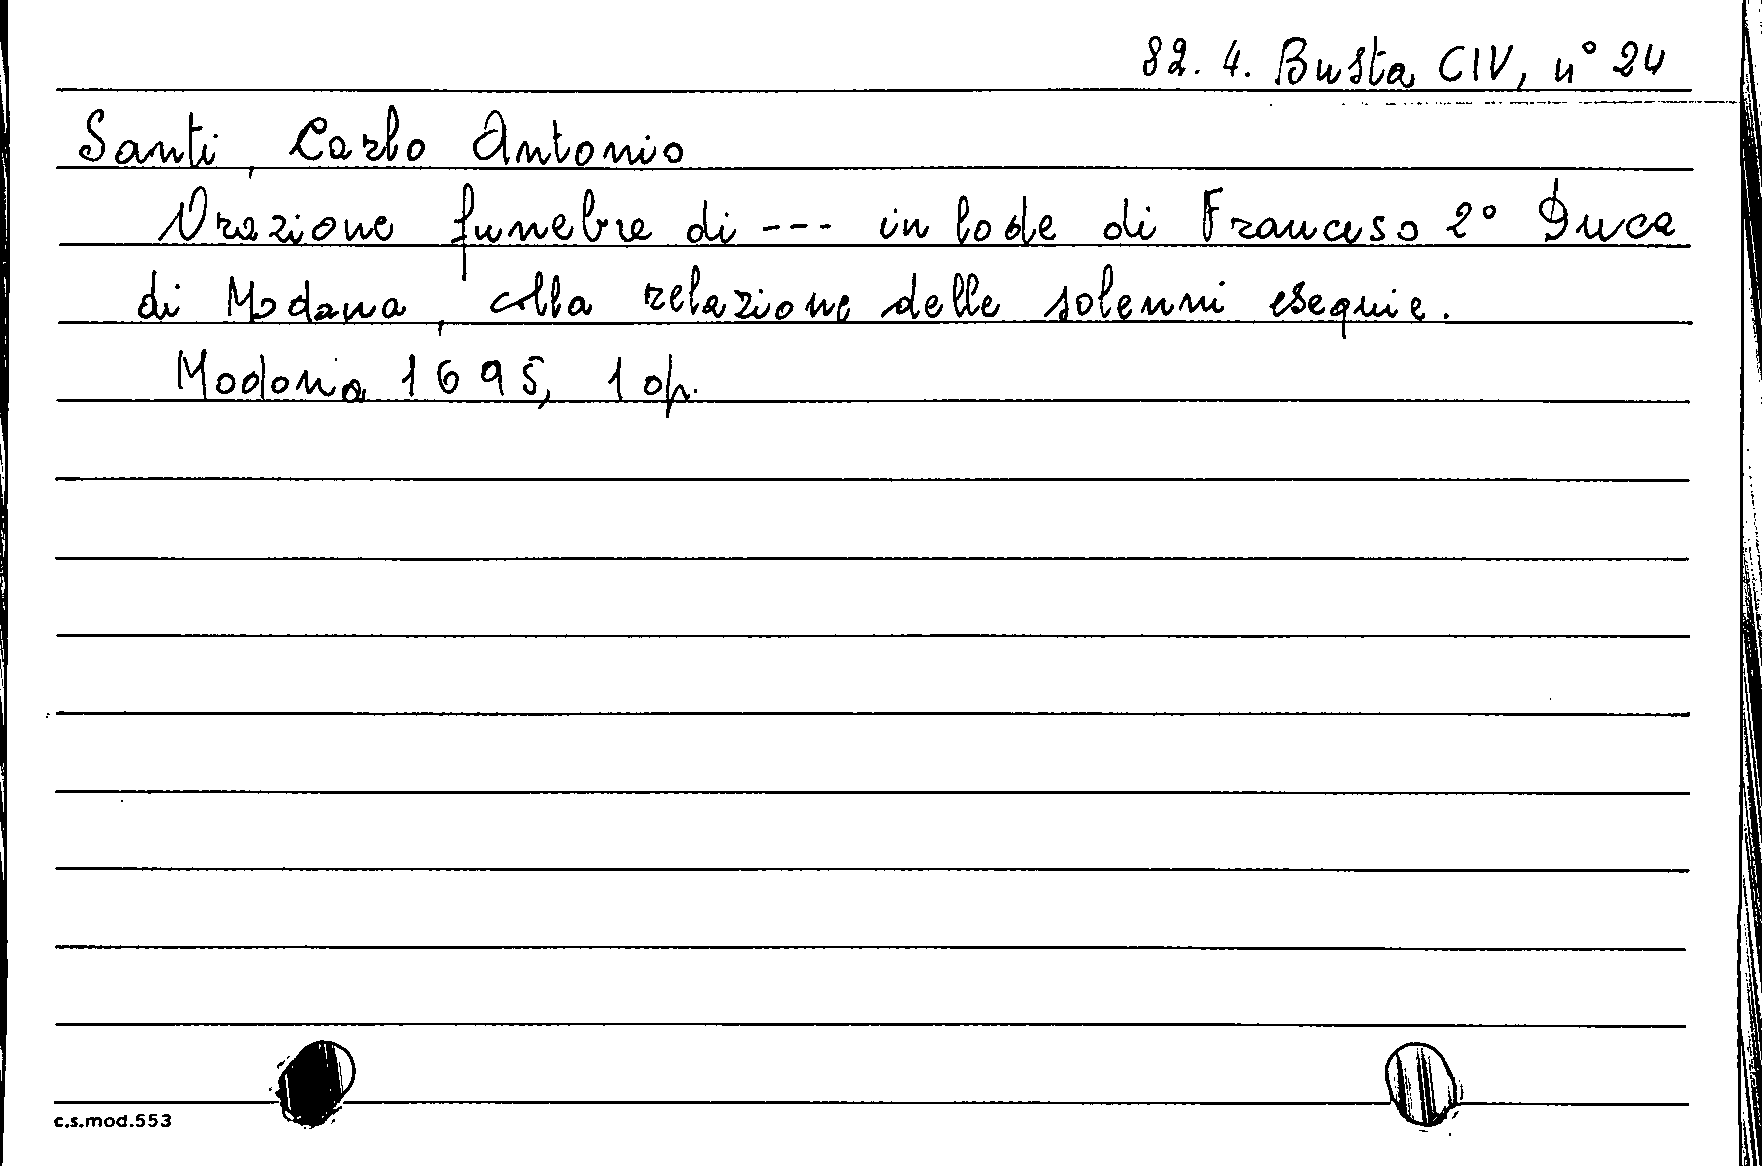 82. 4. Busta CIV, n° 24
Santi, Carlo Antonio
Orazione funebre di --- in lode di Francesco 2° Duca
di Modana, colla relazione delle solenni esequie.
Modona 1695, 1 op.
c.s.mod.553